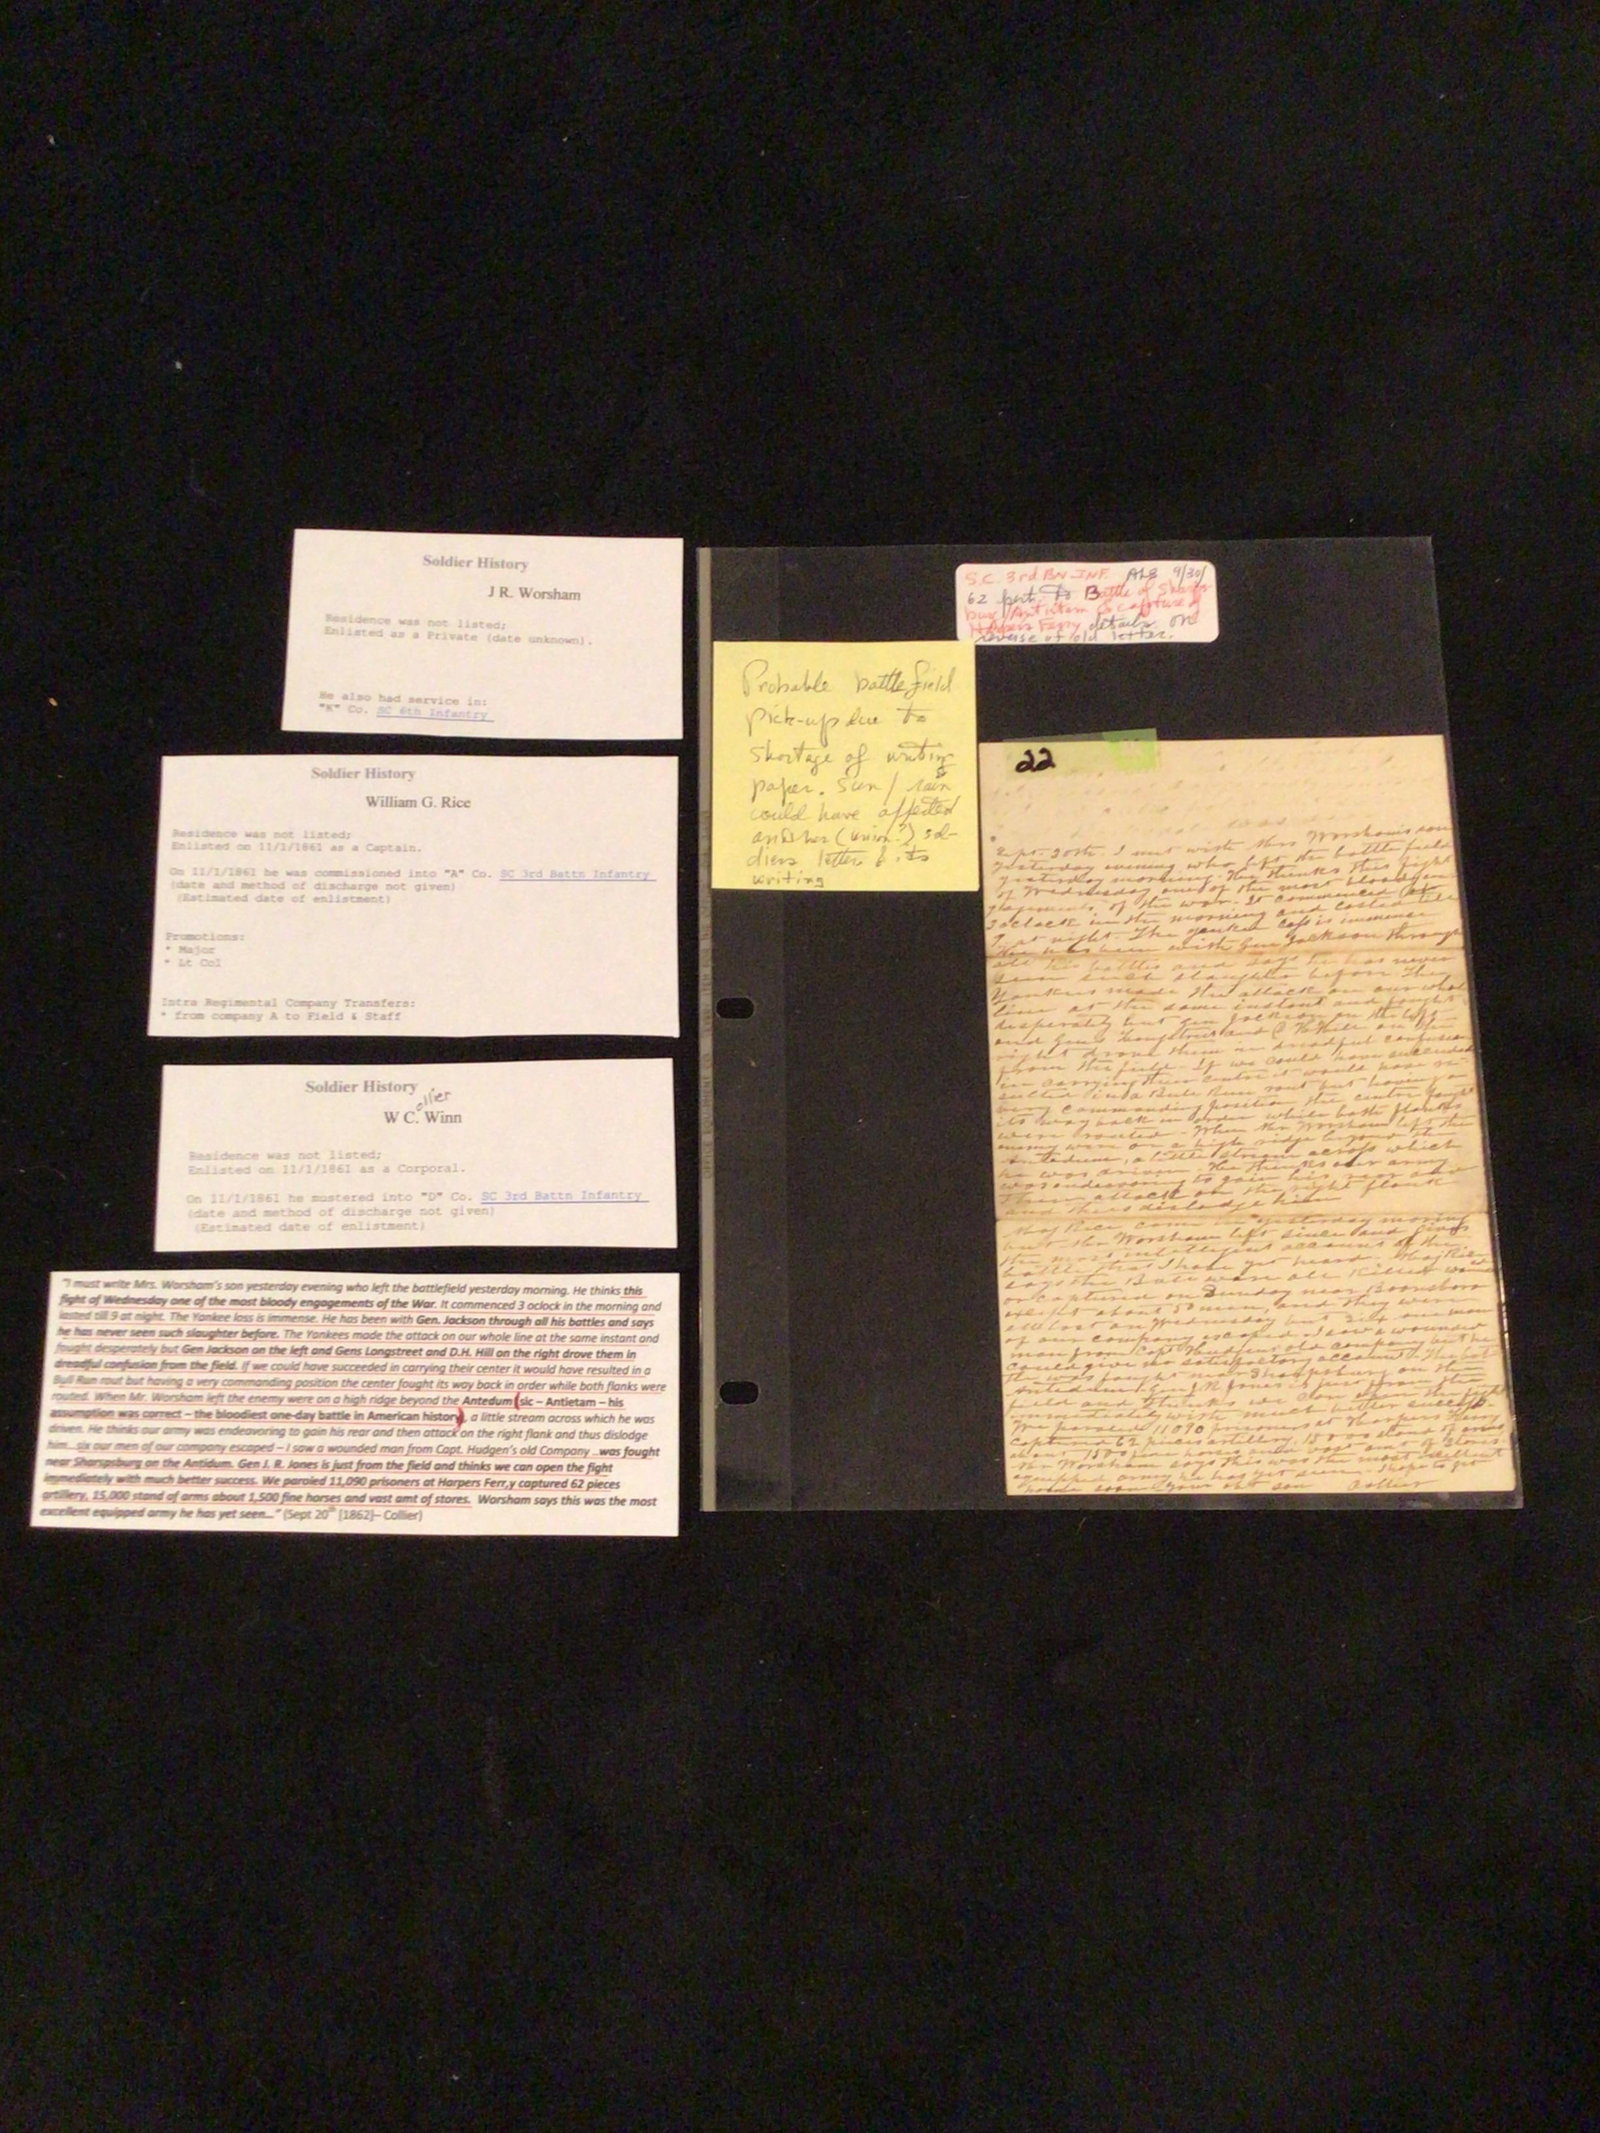 Soldier History
J R. Worsham
Residence was not listed;
Enlisted as a Private (date unknown).
He also had service in:
"K" Co. SC 6th Infantry
Soldier History
William G. Rice
Residence was not listed;
Enlisted on 11/1/1861 as a Captain.
On 11/1/1861 he was commissioned into "A" Co. SC 3rd Battn Infantry
(date and method of discharge not given)
(Estimated date of enlistment)
Promotions:
* Major
* Lt Col
Intra Regimental Company Transfers:
* from company A to Field & Staff
Soldier History
ollier
W C. Winn
Residence was not listed;
Enlisted on 11/1/1861 as a Corporal.
On 11/1/1861 he mustered into "D" Co. SC 3rd Battn Infantry
(date and method of discharge not given)
(Estimated date of enlistment)
"I must write Mrs. Worsham's son yesterday evening who left the battlefield yesterday morning. He thinks this
fight of Wednesday one of the most bloody engagements of the War. It commenced 3 oclock in the morning and
lasted till 9 at night. The Yankee loss is immense. He has been with Gen. Jackson through all his battles and says
he has never seen such slaughter before. The Yankees made the attack on our whole line at the same instant and
fought desperately but Gen Jackson on the left and Gens Longstreet and D.H. Hill on the right drove them in
dreadful confusion from the field. If we could have succeeded in carrying their center it would have resulted in a
Bull Run rout but having a very commanding position the center fought its way back in order while both flanks were
routed. When Mr. Worsham left the enemy were on a high ridge beyond the Antedum (sic – Antietam – his
assumption was correct – the bloodiest one-day battle in American history), a little stream across which he was
driven. He thinks our army was endeavoring to gain his rear and then attack on the right flank and thus dislodge
him...six our men of our company escaped – I saw a wounded man from Capt. Hudgen's old Company ..was fought
near Sharspsburg on the Antidum. Gen J. R. Jones is just from the field and thinks we can open the fight
immediately with much better success. We paroled 11,090 prisoners at Harpers Ferr,y captured 62 pieces
artillery, 15,000 stand of arms about 1,500 fine horses and vast amt of stores. Worsham says this was the most
excellent equipped army he has yet seen..." (Sept 20th [1862]– Collier)
S.C. 3rd BN INF. ALS 9/30/
62 pert. to Battle of Sharps
burg/Antietam & capture of
Harpers Ferry details on
reverse of old letter.
Probable battlefield
pick-up due to
shortage of writing
paper. Sun / rain
could have affected
another (union?) sol-
diers letter & its
writing
22
Sept. 20th. I met with Mrs Worsham's son
yesterday evening who left the battle field
yesterday morning. He thinks this fight
of Wednesday one of the most bloody en
gagements of the war. It commenced
3 oclock in the morning and lasted till
9 at night. The yankee loss is immense
He has been with Gen Jackson through
all his battles and says he has never
seen such slaughter before. The
Yankees made the attack on our whole
line at the same instant and fought
desperately but Gen Jackson on the left
and Gens Longstreet and D H Hill on the
right drove them in dreadful confusion
from the field. If we could have succeeded
in carrying their centre it would have re
sulted in a Bull Run rout but having a
very commanding position the center fought
its way back in order while both flanks
were routed. When Mr Worsham left the
enemy were on a high ridge beyond the
Antedum, a little stream across which
he was driven. He thinks our army
was endeavoring to gain his rear and
then attack on the right flank
and thus dislodge him
Maj Rice came in yesterday morning
but Mr Worsham left since and gives
the most intelligent account of the
battle that I have yet heard. Maj Rice
says the Batt were all killed wounded
or captured on Sunday near Boonsboro
except about 50 men, and they were
all lost on Wednesday but six our men
of our company escaped. I saw a wounded
man from Capt Hudgens old company but he
could give no satisfactory account. The
was fought near Sharpsburg on the
Antedum. Gen J R Jones is just from the
field and thinks we can open the fight
immediately with much better success.
We paroled 11090 prisoners at Harpers Ferry
captured 62 pieces artillery, 15000 stand of arms
about 1500 fine horses and vast amt of stores
Mr Worsham says this was the most excellent
equipped army he has yet seen. I hope to get
home soon your son Collier